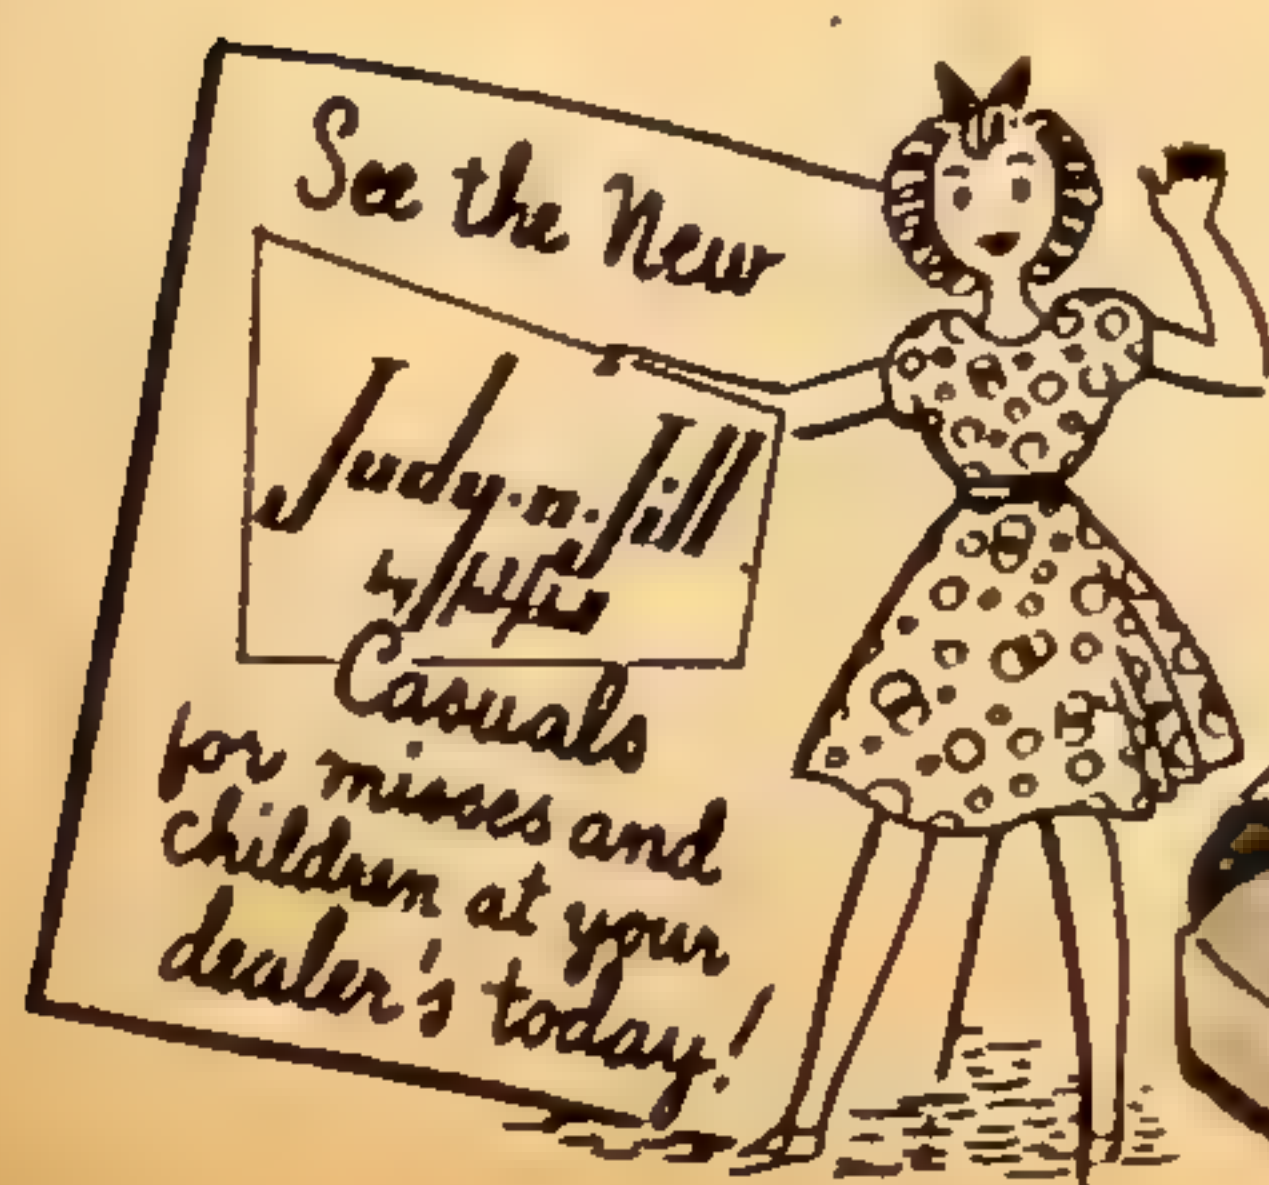 See the New
Judy·n·Jill
by
Casuals
for misses and
children at your
dealer's today!